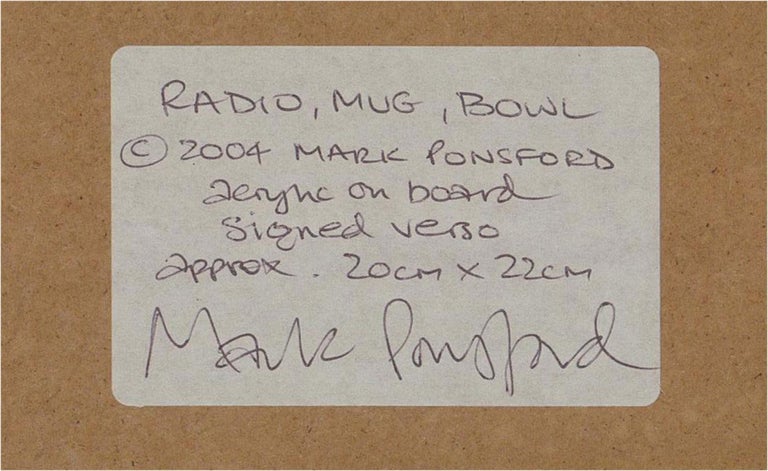 RADIO, MUG, BOWL
© 2004 MARK PONSFORD
acrylic on board
signed verso
approx. 20cm x 22cm
Mark Ponsford